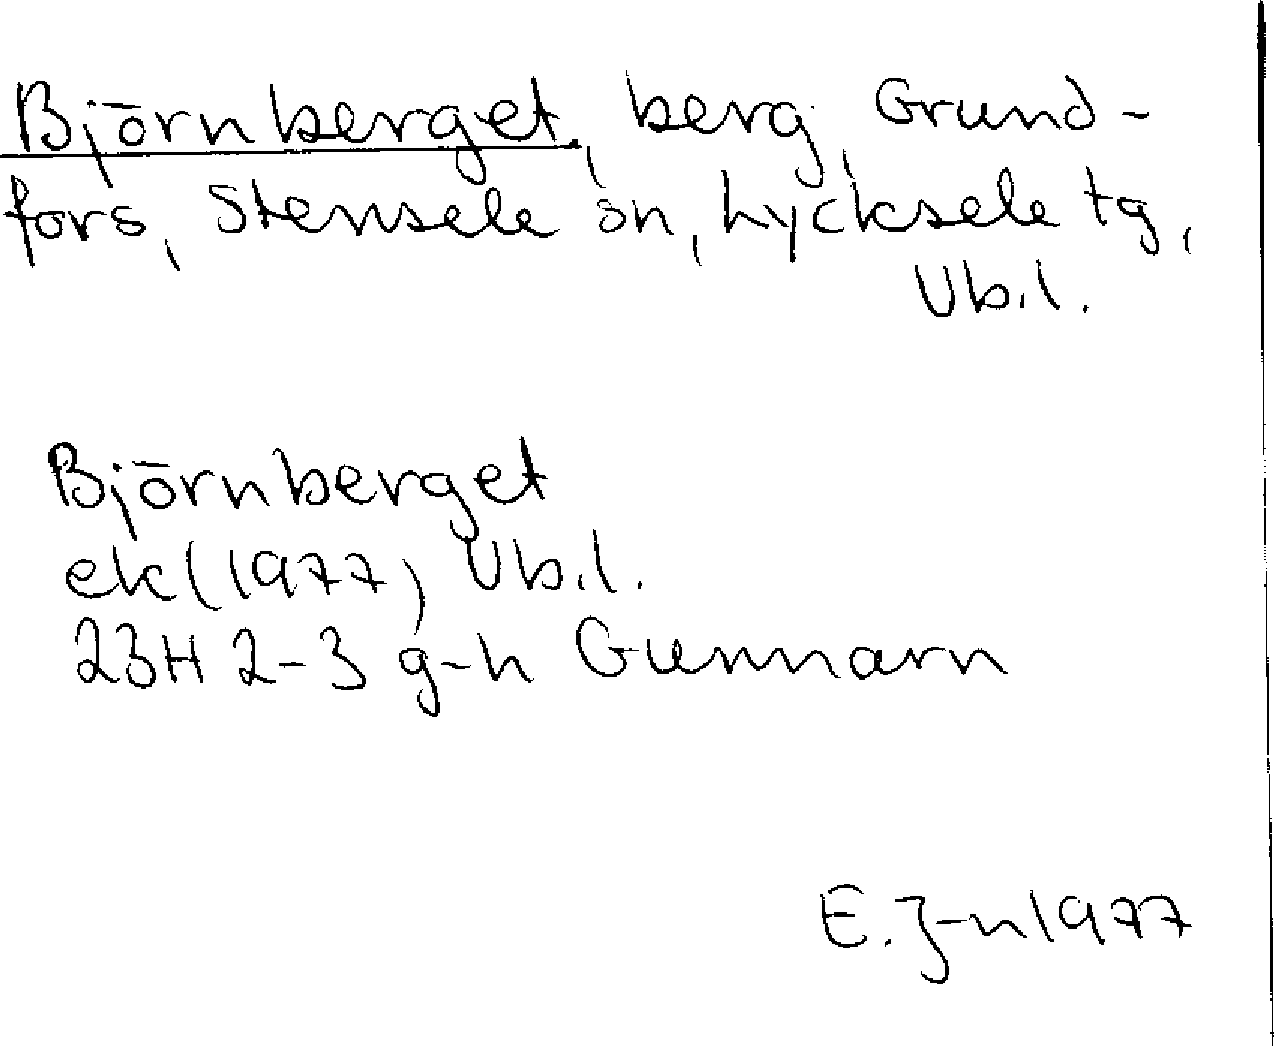 Björnberget, berg, Grund-
fors, Stensele sn, Lycksele tg,
Vb.l.
Björnberget
ek (1977) Vb.l.
23H 2-3 g-h Gunnarn
E.J-n 1977